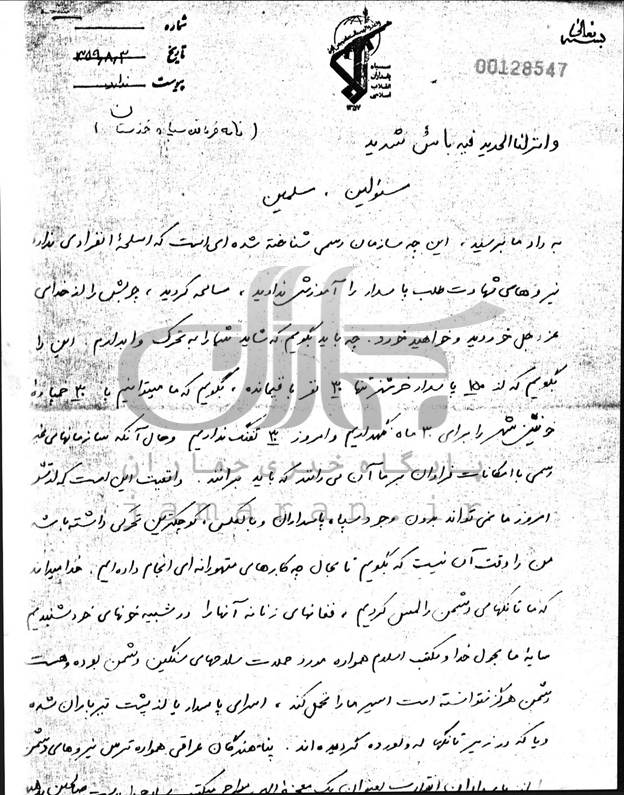 بسمه تعالی
شماره
تاریخ ۳۵۹٫۸٫۳
پیوست ندارد
سپاه
پاسداران
انقلاب
اسلامی
۱۳۵۷
00128547
(نامه فرمانده سپاه خوزستان)
وانزلنا الحدید فیه باس شدید
مسئولین ، مسلمین
به داد ما برسید ، این چه سازمان رسمی شناخته شده ای است که اسلحه انفرادی ندارد
نیروهای شهادت طلب پاسدار را آموزش ندادید ، مسامحه کردید ، چوبش را از خدای
عزوجل خوردید و خواهید خورد . چه باید بگویم که شاید شما را به تحرک وادارم این را
بگویم که از ۱۵۰ پاسدار خرمشهر تنها ۳۰ نفر باقیمانده ، بگویم که ما میتوانیم با ۳۰ خمپاره
خونین شهر را برای ۳۰ ماه نگهداریم و امروز ۳۰ تفنگ نداریم وحال آنکه سازمانهای غیر
رسمی با امکانات فراوان بر ما آن می رانند که باید برانند . واقعیت این است که ارتش
امروز ما نمی تواند بدون وجود سپاه پاسداران و بالعکس، کوچکترین تحرکی داشته باشد
من را وقت آن نیست که بگویم تا بحال چه کارهای متهورانه ای انجام داده ایم . خدا میداند
که ما تانکهای دشمن را لمس کردیم ، فغانهای زنانه آنها را در شبیه خونهای خود شنیدیم
سایه ما بحول خدا و مکتب اسلام همواره مورد حملات سلاحهای سنگین دشمن بوده و هست
دشمن هرگز نتوانسته است اسیر ما را تحمل کند ، اسرای پاسدار یا از پشت تیرباران شده
و یا که در زیر تانکها له و لورده گردیده اند . پناهندگان عراقی همواره ترس نیروهای دشمن
را از پاسداران انقلاب بعنوان یک معجزه الهی
پایگاه خبری جماران
jamaran.ir